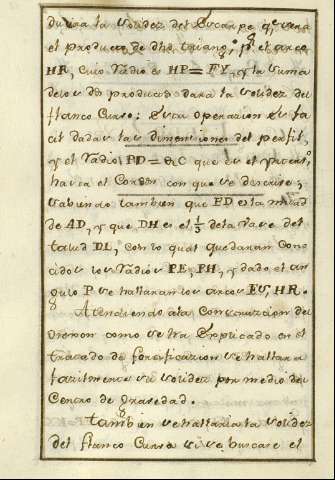 dulera la Solidez del Escarpe q.e sera
el producto de dho triang.o p.r el arco
HR, cuio radio es HP=FY, y la suma
de los dos productos dara la solidez del
flanco Curvo: Esta operazion es fa
cil dadas las dimensiones del perfil,
y el radio PD = &C que es el
hasta el Cordon con que se descrive,
sabiendo tambien que FD es la mitad
de AD, y que DH es el 1/5 de la vase del
talud DL, con lo qual quedaran cono
cidos los radios PE, PH, y dado el an
gulo P se hallaran los arcos ES, HR.
Atendiendo a la Construczion del
Orejon como se ha Explicado en el
trazado de fortificazion se hallara
fazilmente su solidez por medio del
Centro de Gravedad.
tambien se hallaria la solidez
del flanco Curvo si se buscase el